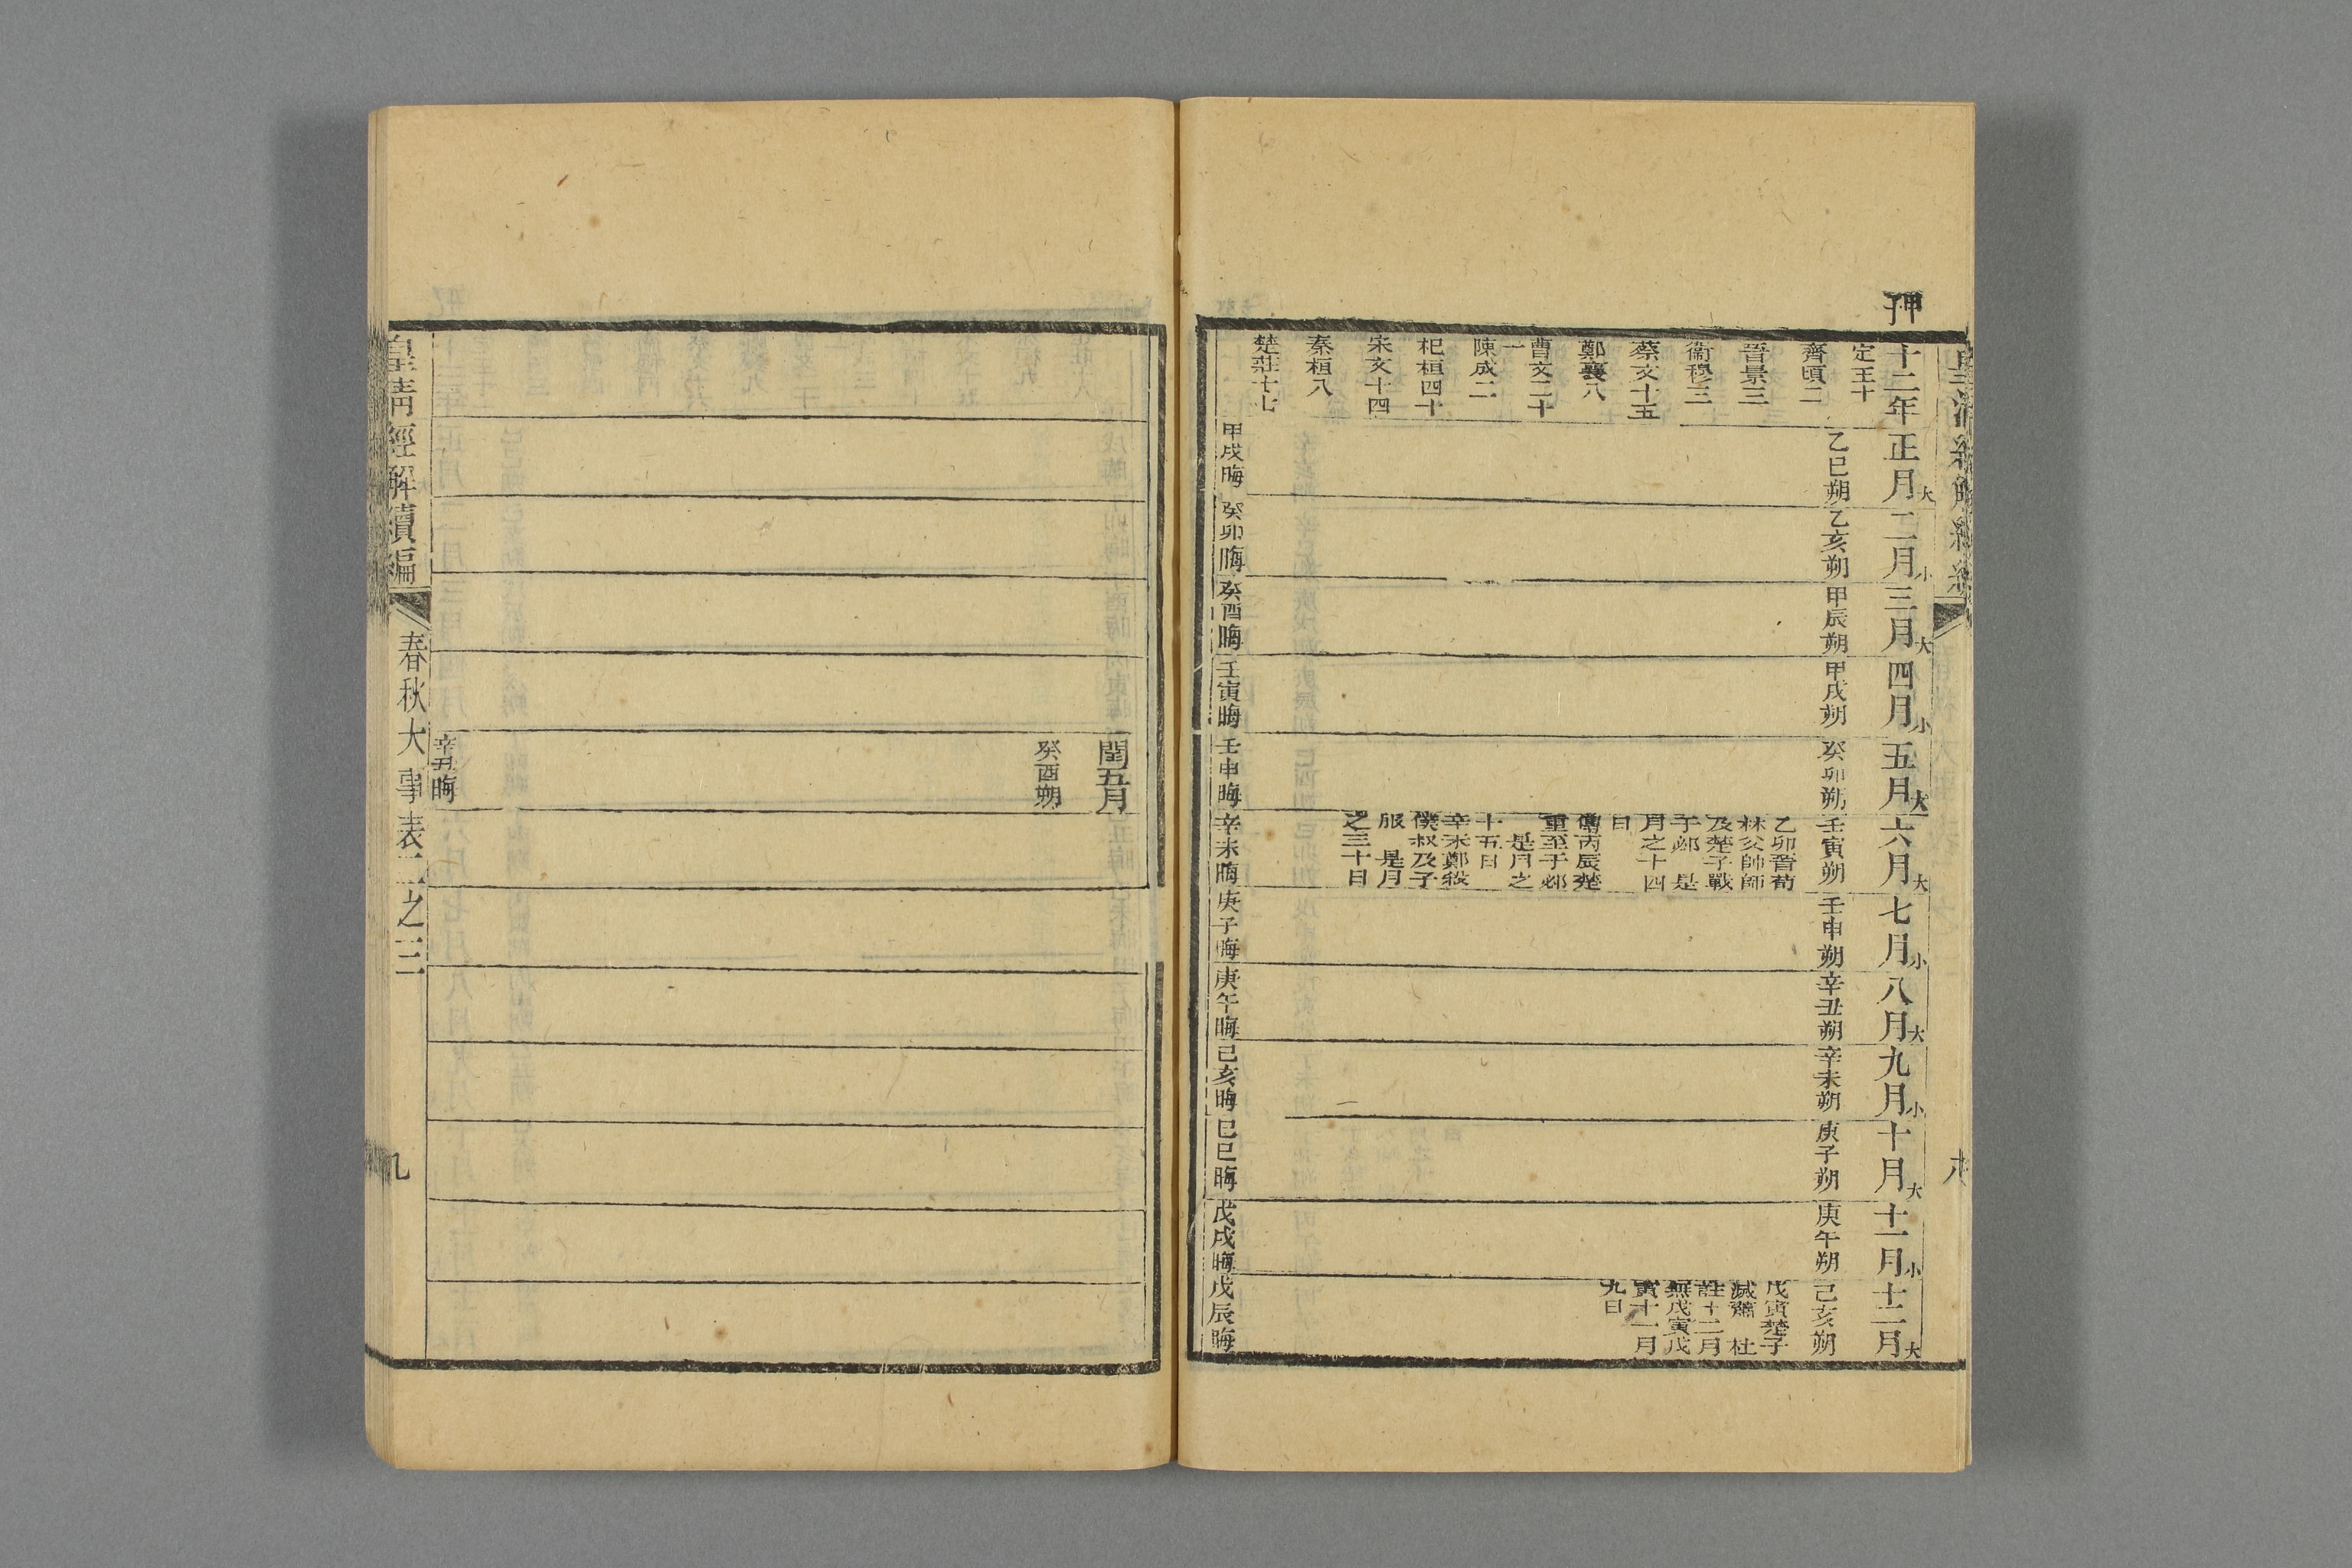 甲子
十二年
定王十
齊頃二
晉景三
衞穆三
蔡文十五
鄭襄八
曹文二十一
陳成二
杞桓四十
宋文十四
秦桓八
楚莊十七
正月大
乙巳朔
甲戌晦
二月小
乙亥朔
癸卯晦
三月大
甲辰朔
癸酉晦
四月小
甲戌朔
壬寅晦
五月大
癸卯朔
壬申晦
六月大
壬寅朔
乙卯晉荀
林父帥師
及楚子戰
于邲 是
月之十四
日
傳丙辰楚
重至于邲
是月之
十五日
辛未鄭殺
僕叔及子
服 是月
之三十日
辛未晦
七月小
壬申朔
庚子晦
八月大
辛丑朔
庚午晦
九月小
辛未朔
己亥晦
十月大
庚子朔
己巳晦
十一月小
庚午朔
戊戌晦
十二月大
己亥朔
戊寅楚子
滅蕭 杜
註十二月
無戊寅戊
寅十一月
九日
戊辰晦
閏五月
癸酉朔
辛丑晦
皇清經解續編
春秋大事表二之三
九